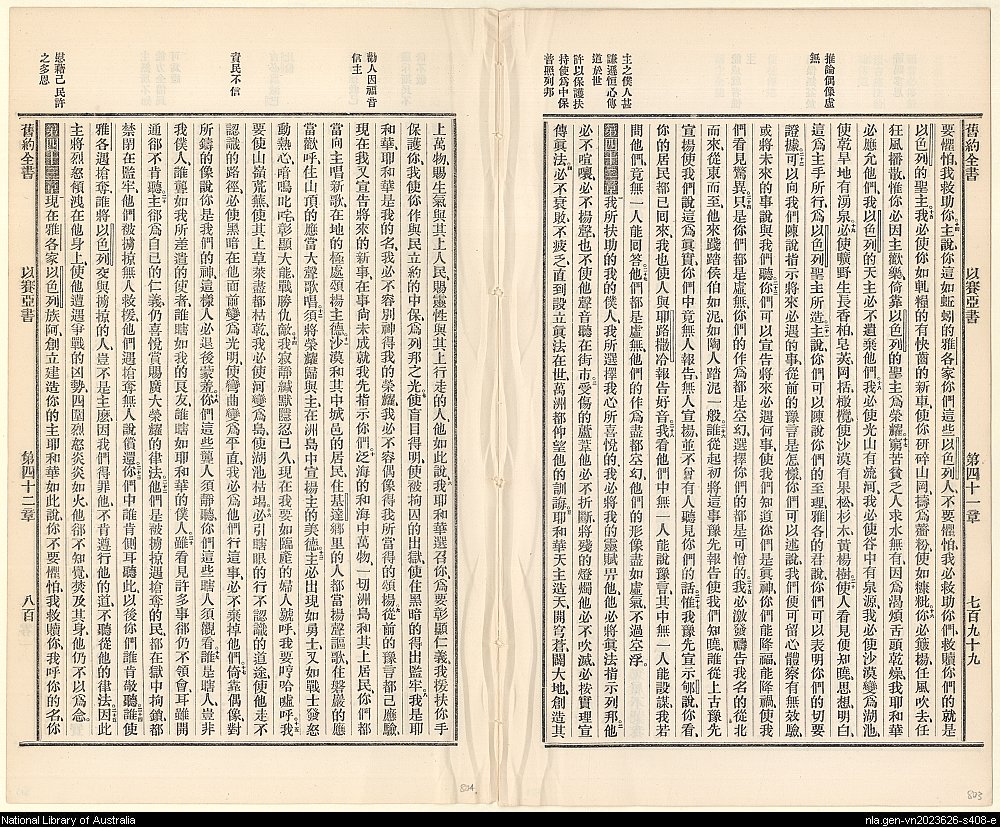 舊約全書 以賽亞書 第四十一章 七百九十九
要懼怕我救助你主說你這如蚯蚓的雅各家你們這些以色列人不要懼怕我必救助你們救贖你們的就是
以色列的聖主我必使你如軋糧的有快齒的新車使你研碎山岡擣為虀粉使如糠粃你必簸揚任風吹去任
狂風播散惟你必因主歡樂倚靠以色列的聖主為榮耀窮苦貧乏人求水無有因為渴煩舌頭乾燥我耶和華
必應允他們我以色列的天主必不遺棄他們我必使光山有流河我必使谷中有泉源我必使沙漠變為湖池
使乾旱地有湧泉必使曠野生長香柏皂莢岡拈橄欖使沙漠有果松杉木黃楊樹使人看見便知曉思想明白
這為主手所行為以色列聖主所造主說你們可以陳說你們的至理雅各的君說你們可以表明你們的切要
證據可以向我們陳說指示將來必遇的事從前的豫言是怎樣你們可以述說我們便可留心體察有無效驗
或將未來的事說與我們聽你們可以宣告將來必遇何事使我們知道你們是真神你們能降福能降禍使我
們看見驚異只是你們都是虛無你們的作為都是空幻選擇你們的都是可憎的我必激發禱告我名的從北
而來從東而至他來踐踏侯伯如泥如陶人踏泥一般誰從起初將這事豫先報告使我們知曉誰從上古豫先
宣揚使我們說這為真實你們中竟無人報告無人宣揚並不曾有人聽見你們的話惟我豫先宣示郇說你看
你的居民都已回來我也使人與耶路撒冷報告好音我看他們中無一人能說豫言其中無一人能設謀我若
問他們竟無一人能回答他們都是虛無他們的作為盡都空幻他們的形像盡如虛氣不過空浮
第四十二章我所扶助的我的僕人我所選擇我心所喜悅的我必將我的靈賦畀他他必將真法指示列邦他
必不喧嚷必不揚聲也不使他聲音聽在街市受傷的蘆葦他必不折斷將殘的燈燭他必不吹滅必按實理宣
傳真法必不衰敗不疲乏直到設立真法在世萬洲都仰望他的訓誨耶和華天主造天開穹蒼闢大地創造其
推論偶像虛
無
主之僕人甚
謙遜恒心傳
道於世
許以保護扶
持使為中保
普照列邦
上萬物賜生氣與其上人民賜靈性與其上行走的人他如此說我耶和華選召你為要彰顯仁義我援扶你手
保護你我使你作與民立約的中保為列邦之光使盲目得明使被拘囚的出獄使住黑暗的得出監牢我是耶
和華耶和華是我的名我必不容別神得我的榮耀我必不容偶像得我所當得的頌揚從前的豫言都已應驗
現在我又宣告將來的新事在事尙未成就我先指示你們泛海的和海中萬物一切洲島和其上居民你們都
當向主唱新歌在地的極處頌揚主德沙漠和其中城邑的居民住基達鄉里的人都當揚聲謳歌住磐巖的應
當歡呼住山頂的應當大聲歌唱須將榮耀歸與主在洲島中宣揚主的美德主必出現如勇士又如戰士發怒
動熱心喑嗚叱咤彰顯大能戰勝仇敵我寂靜緘默隱忍已久現在我要如臨產的婦人號呼我要哼哈噓呼我
要使山嶺荒蕪使其上草萊盡都枯乾我必使河變為島使湖池枯竭必引瞎眼的行不認識的道途使他走不
認識的路徑必使黑暗在他面前變為光明使彎曲變為平直我必為他們行這事必不棄掉他們倚靠偶像對
所鑄的像說你是我們的神這樣人必退後蒙羞你們這些聾人須靜聽你們這些瞎人須觀看誰是瞎人豈非
我僕人誰聾如我所差遣的使者誰瞎如我的良友誰瞎如耶和華的僕人雖看見許多事卻仍不領會耳雖開
通卻不肯聽主卻為自己的仁義仍喜悅賞賜廣大榮耀的律法他們是被擄掠遇搶奪的民都在獄中拘鎖都
禁閉在監牢他們被擄掠無人救援他們遇搶奪無人說償還你們中誰肯側耳聽此以後你們誰肯敬聽誰使
雅各遇搶奪誰將以色列交與擄掠的人豈不是主麼因我們得罪他不肯遵行他的道不聽從他的律法因此
主將烈怒傾洩在他身上使他遭遇爭戰的凶勢四圍烈怒炎炎如火他卻不知覺焚及其身他仍不以為念
第四十三章現在雅各家以色列族阿創立建造你的主耶和華如此說你不要懼怕我救贖你我呼你的名你
舊約全書 以賽亞書 第四十二章 八百
勸人因福音
信主
責民不信
慰藉己民許
之多恩
804
803
National Library of Australia
nla.gen-vn2023626-s408-e